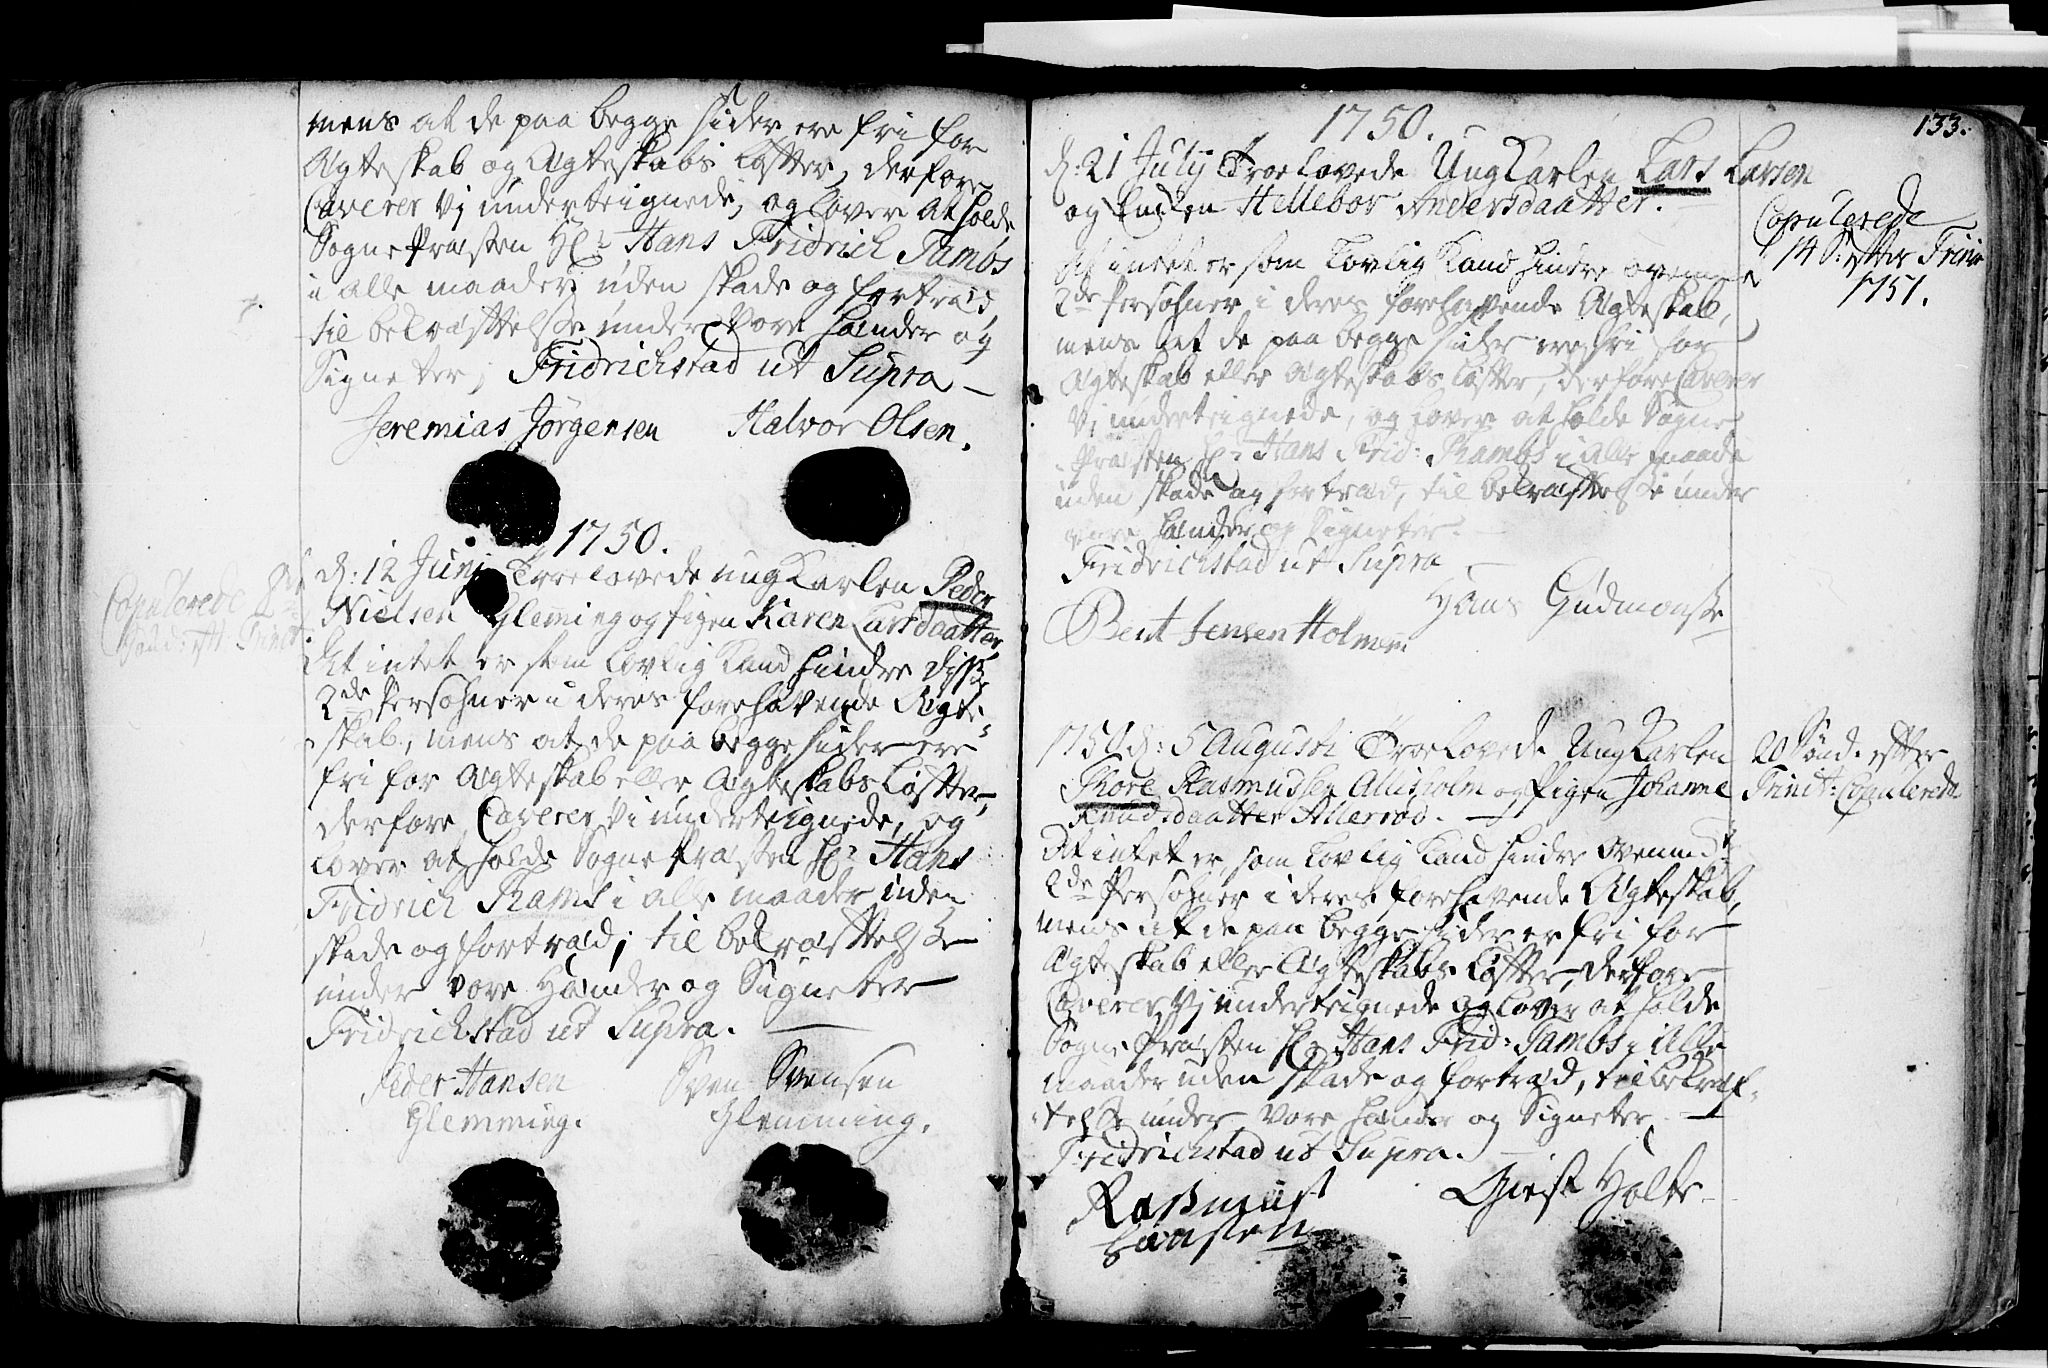 mens at de paa begge sider ere fri for
Ægteskab og Ægteskabs Løfter, derfore
Caverer Vj underteignede, og lover at holde
Sogne Præsten Hr: Hans Fridrich Tambs
i alle maader uden skade og fortræd,
til bekræftelse under Vore Hænder og
Signeter, Fridrichstad ut Supra —
Jeremias Jörgensen Halvor Olsen.
1750.
d: 12 Junj Troelovede ungKarlen Peder
Nielsen Glemming og Pigen Karen Larsdaatter,
Copulerede
Trinit.
At intet er som lovlig Kand hindre disse
2de Persohner i deres forehavende Ægte-
skab, mens at de paa begge sider ere
fri for Ægteskab eller Ægteskabs Løfter,
derfore Caverer Vi underteignede, og
lover at holde Sogne Præsten Hr: Hans
Fridrich Tambs i alle maader uden
skade og fortræd; til bekræftelse
under vore Hænder og Signeter
Fridrichstad ut Supra. —
Peder Hansen Sven Svensen
Glemming. Glemming.
133.
1750.
d: 21 July Troelovede UngKarlen Lars Larsen
og Enken Hellebor Andersdaatter.
Copulerede
14 S: efter Trinit
1751.
At intet er som Lovlig Kand hindre
2de Persohner i deres forehavende Ægteskab,
mens at de paa begge sider ere fri for
Ægteskab eller Ægteskabs Løfter, derfore Caverer
Vj underteignede, og lover at holde Sogne
Præsten Hr: Hans Frid: Tambs i alle maade
uden skade og fortræd, til bekræftelse under
vore Hænder og Signeter. —
Fridrichstad ut Supra —
Hans Gudmonse
Bent Jensen Holmen.
d: 5 Augusti Troelovede UngKarlen
Thore Rasmussen Allisholm og Pigen Johanne
Knudsdaatter Allerød. —
20 Sønd. efter
Trinit: Copulerede
At intet er, som Lovlig Kand hindre ovenmdt
2de Persohner i deres forehavende Ægteskab,
mens at de paa begge sider er fri for
Ægteskab eller Ægteskabs Løfter, derfore
Caverer Vj underteignede og lover at holde
Sogne Præsten Hr: Hans Frid: Tambs i Alle
maader uden skade og fortræd, til bekræf-
telse under Vore Hænder og Signeter —
Fridrichstad ut Supra. —
Rasmus Giest Holte
Hansen